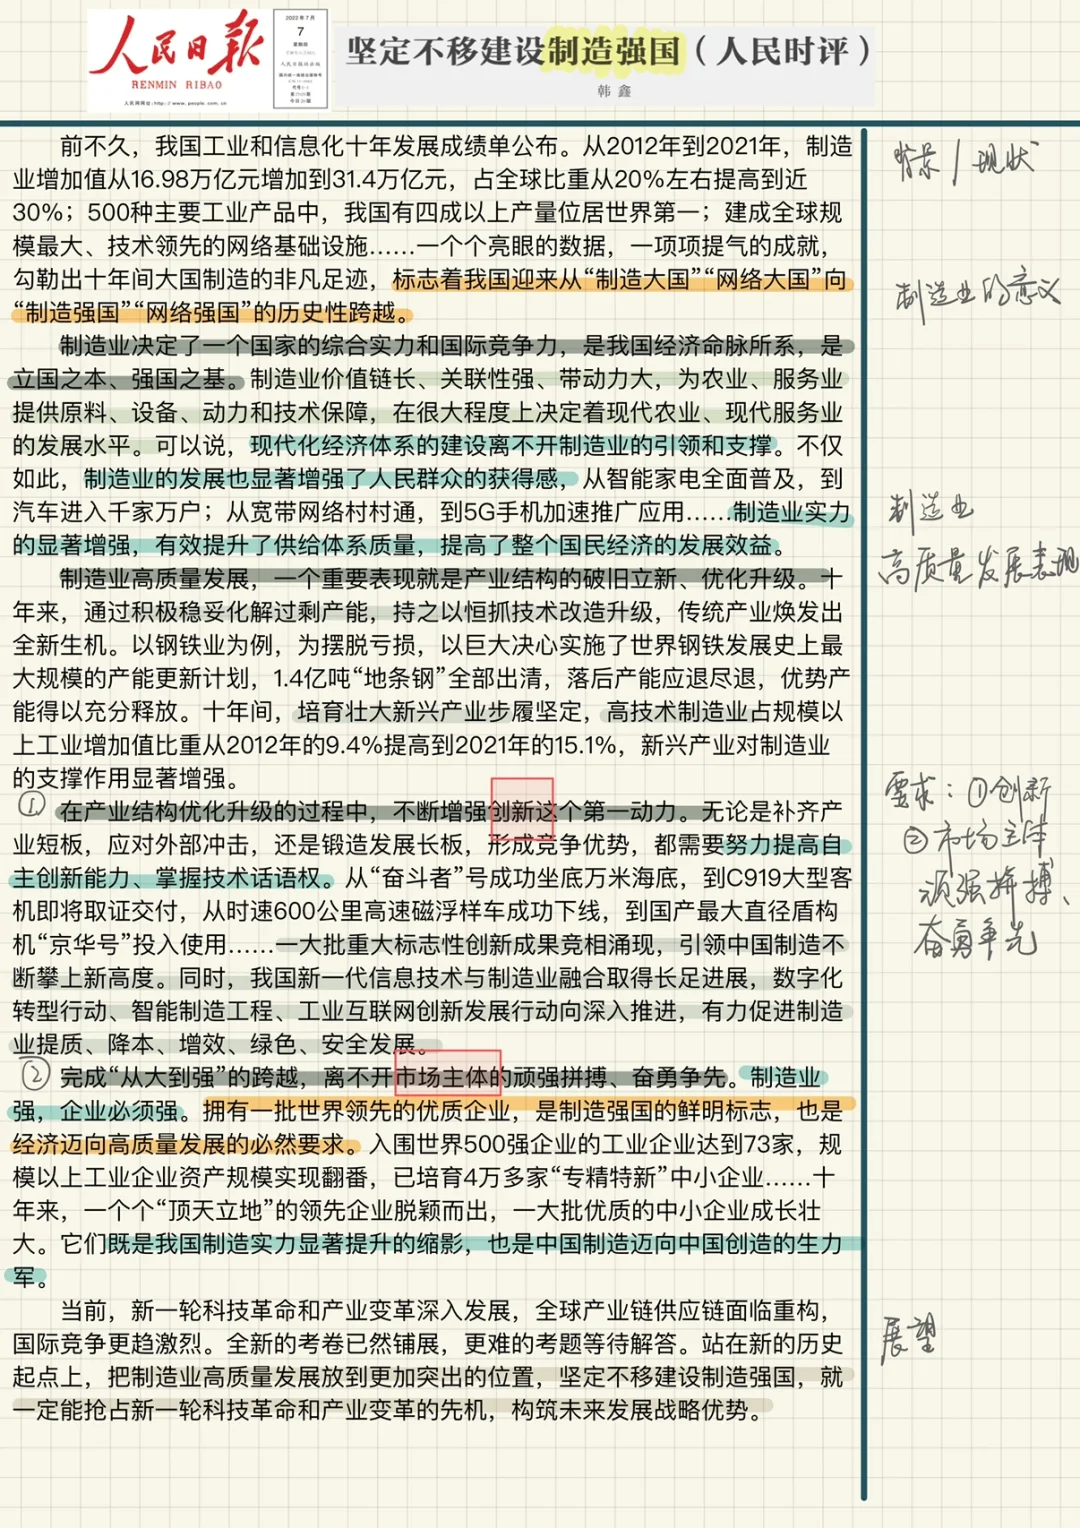 人民日报
RENMIN RIBAO
人民网网址:http://www.people.com.cn
2022年7月
7
星期四
坚定不移建设制造强国（人民时评）
韩鑫
前不久，我国工业和信息化十年发展成绩单公布。从2012年到2021年，制造
业增加值从16.98万亿元增加到31.4万亿元，占全球比重从20%左右提高到近
30%；500种主要工业产品中，我国有四成以上产量位居世界第一；建成全球规
模最大、技术领先的网络基础设施……一个个亮眼的数据，一项项提气的成就，
勾勒出十年间大国制造的非凡足迹，标志着我国迎来从“制造大国”“网络大国”向
“制造强国”“网络强国”的历史性跨越。
制造业决定了一个国家的综合实力和国际竞争力，是我国经济命脉所系，是
立国之本、强国之基。制造业价值链长、关联性强、带动力大，为农业、服务业
提供原料、设备、动力和技术保障，在很大程度上决定着现代农业、现代服务业
的发展水平。可以说，现代化经济体系的建设离不开制造业的引领和支撑。不仅
如此，制造业的发展也显著增强了人民群众的获得感，从智能家电全面普及，到
汽车进入千家万户；从宽带网络村村通，到5G手机加速推广应用……制造业实力
的显著增强，有效提升了供给体系质量，提高了整个国民经济的发展效益。
制造业高质量发展，一个重要表现就是产业结构的破旧立新、优化升级。十
年来，通过积极稳妥化解过剩产能，持之以恒抓技术改造升级，传统产业焕发出
全新生机。以钢铁业为例，为摆脱亏损，以巨大决心实施了世界钢铁发展史上最
大规模的产能更新计划，1.4亿吨“地条钢”全部出清，落后产能应退尽退，优势产
能得以充分释放。十年间，培育壮大新兴产业步履坚定，高技术制造业占规模以
上工业增加值比重从2012年的9.4%提高到2021年的15.1%，新兴产业对制造业
的支撑作用显著增强。
①在产业结构优化升级的过程中，不断增强创新这个第一动力。无论是补齐产
业短板，应对外部冲击，还是锻造发展长板，形成竞争优势，都需要努力提高自
主创新能力、掌握技术话语权。从“奋斗者”号成功坐底万米海底，到C919大型客
机即将取证交付，从时速600公里高速磁浮样车成功下线，到国产最大直径盾构
机“京华号”投入使用……一大批重大标志性创新成果竞相涌现，引领中国制造不
断攀上新高度。同时，我国新一代信息技术与制造业融合取得长足进展，数字化
转型行动、智能制造工程、工业互联网创新发展行动向深入推进，有力促进制造
业提质、降本、增效、绿色、安全发展。
②完成“从大到强”的跨越，离不开市场主体的顽强拼搏、奋勇争先。制造业
强，企业必须强。拥有一批世界领先的优质企业，是制造强国的鲜明标志，也是
经济迈向高质量发展的必然要求。入围世界500强企业的工业企业达到73家，规
模以上工业企业资产规模实现翻番，已培育4万多家“专精特新”中小企业……十
年来，一个个“顶天立地”的领先企业脱颖而出，一大批优质的中小企业成长壮
大。它们既是我国制造实力显著提升的缩影，也是中国制造迈向中国创造的生力
军。
当前，新一轮科技革命和产业变革深入发展，全球产业链供应链面临重构，
国际竞争更趋激烈。全新的考卷已然铺展，更难的考题等待解答。站在新的历史
起点上，把制造业高质量发展放到更加突出的位置，坚定不移建设制造强国，就
一定能抢占新一轮科技革命和产业变革的先机，构筑未来发展战略优势。
背景/现状
制造业的意义
制造业
高质量发展表现
要求：①创新
②市场主体
顽强拼搏、
奋勇争先
展望